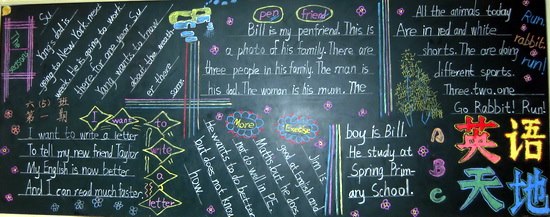 Su
Yang's dad is
going to New York next
week. He is going to work
there for one year. Su
Yang wants to know
about the weat-
er there.
same
pen friend
Bill is my penfriend. This is
a photo of his family. There are
three people in his family. The man is
his dad. The woman is his mum. The
boy is Bill.
He study at
Spring Prim-
ary School.
All the animals today
Are in red and white
shorts. The are doing
different sports.
Three, two, one
Go Rabbit! Run!
Run,
rabbit.
run!
六(5)班
第一期
I want to write a letter
I want to write a letter
To tell my new friend Taylor
My English is now better
And I can read much faster
More Exercise
Jim is
good at English and
Maths but he does
not do well in PE.
He wants to do better
but does not know
how.
A B C
英语
天地